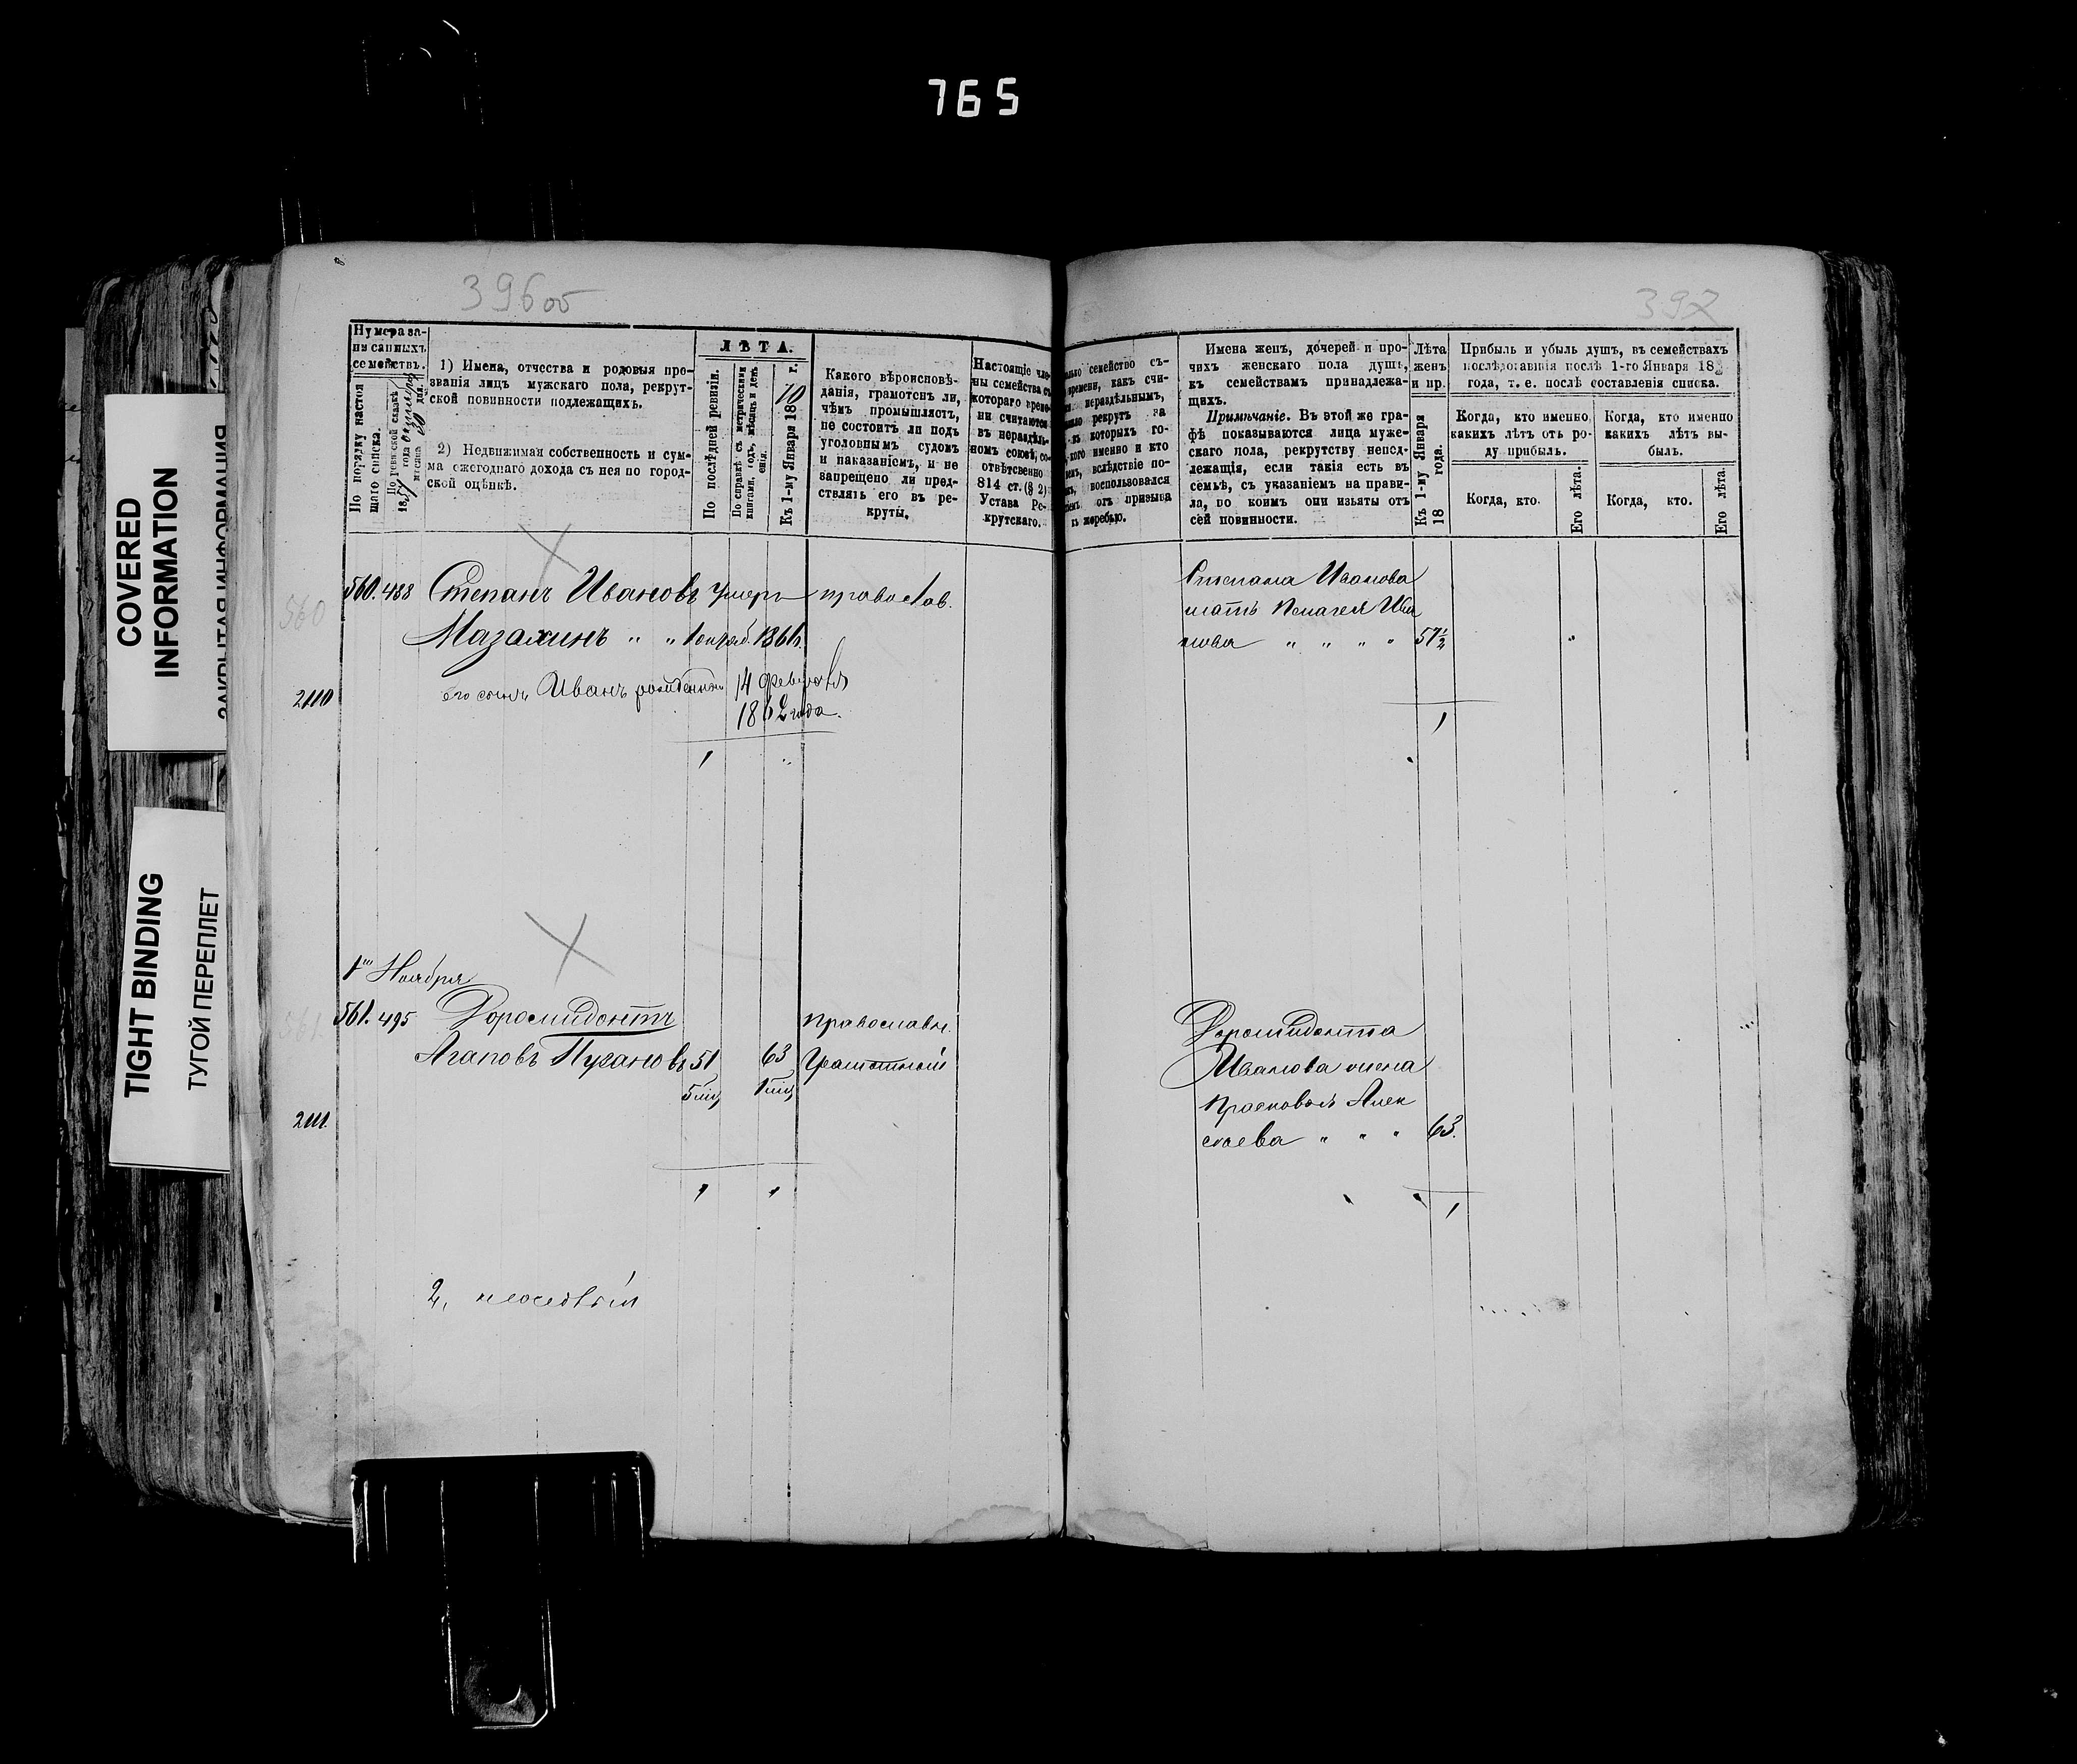 765
COVERED
INFORMATION
ЗАКРЫТАЯ ИНФОРМАЦИЯ
TIGHT BINDING
ТУГОЙ ПЕРЕПЛЕТ
396об
Нумера за-
писанныхъ
семействъ.
По порядку настоя
щаго списка.
По ревизской сказкѣ
1857 года
мѣсяца 20 дня.
1) Имена, отчества и родовыя про-
званія лицъ мужскаго пола, рекрут-
ской повинности подлежащихъ.
2) Недвижимая собственность и сум-
ма ежегоднаго дохода съ нея по город-
ской оцѣнкѣ.
ЛѢТА.
По послѣдней ревизіи.
По справкѣ съ метрическими
книгами, годъ, мѣсяцъ и день
Къ 1-му Января 1870 г.
Какого вѣроисповѣ-
данія, грамотенъ ли,
чѣмъ промышляетъ,
не состоитъ ли подъ
уголовнымъ судомъ
и наказаніемъ, и не
запрещено ли пред-
ставлять его въ ре-
круты.
Настоящіе чле-
ны семейства съ
котораго време-
ни считаются
въ нераздѣль-
номъ союзѣ, со-
отвѣтственно
814 ст. (§ 2)
Устава Ре-
крутскаго.
560
560. 488 Степанъ Ивановъ умеръ православ.
Мазахинъ " " 1 октяб. 1861.
2110
его сынъ Иванъ 14 февраля
1862 года.
1 "
1го Ноября
561
561. 495 Доромидонтъ православн.
Агаповъ Пугановъ 51 63 Грамотный
5 мѣс 1 мѣс
2111.
1 1
2,
397
семейство съ-
времени, какъ счи-
нераздѣльнымъ,
рекрутъ за
которыхъ го-
кого именно и кто
вслѣдствіе по-
воспользовался
отъ призыва
къ жеребью.
Имена женъ, дочерей и про-
чихъ женскаго пола душъ,
къ семействамъ принадлежа-
щихъ.
Примѣчаніе. Въ этой же гра-
фѣ показываются лица муже-
скаго пола, рекрутству непод-
лежащія, если такія есть въ
семьѣ, съ указаніемъ на прави-
ла, по коимъ они изъяты отъ
сей повинности.
Лѣта
женъ
и пр.
Къ 1-му Января
18 года.
Прибыль и убыль душъ, въ семействахъ
послѣдовавшія послѣ 1-го Января 18
года, т. е. послѣ составленія списка.
Когда, кто именно,
какихъ лѣтъ отъ ро-
ду прибылъ.
Когда, кто именно
какихъ лѣтъ вы-
былъ.
Когда, кто.
Его лѣта.
Когда, кто.
Его лѣта.
Степана Иванова
мать Пелагея Ива
нова " " " " 57½
1
Доромидонта
Иванова жена
Прасковья Алек
сѣева " " " 63.
1